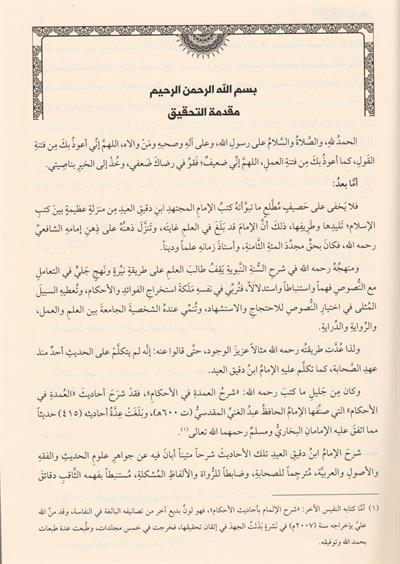 بسم الله الرحمن الرحيم
مقدمة التحقيق
الحمدُ للهِ، والصَّلاةُ والسَّلامُ على رسولِ اللهِ، وعلى آلِهِ وصحبِهِ ومَنْ والاه، اللهمَّ إني أعوذُ بكَ مِن فتنةِ
القولِ، كما أعوذُ بكَ مِن فتنةِ العملِ، اللهمَّ إني ضعيفٌ؛ فَقَوِّ في رضاكَ ضَعفي، وخُذْ إلى الخيرِ بناصِيتي.
أمَّا بعدُ:
فلا يَخفى على حَصيفٍ مُطَّلِعٍ ما تبوَّأتهُ كتبُ الإمامِ المجتهدِ ابنِ دقيقِ العيدِ مِن منزلةٍ عظيمةٍ بينَ كتبِ
الإسلامِ؛ تليدِها وطَريفِها، ذلكَ أنَّ الإمامَ قد بَلَغَ في العلمِ غايتَه، وتَنَزَّلَ ذهنُهُ على ذِهنِ إمامِهِ الشافعيِّ
رحمه الله، فكانَ بحقٍّ مجدِّدَ المئةِ الثَّامنةِ، وأستاذَ زمانِهِ علماً وديناً.
ومنهجُهُ رحمه الله في شرحِ السُّنَّةِ النَّبويةِ يَقِفُ طالبَ العلمِ على طريقةٍ نيِّرةٍ ونَهجٍ جَليٍّ في التعاملِ
معَ النُّصوصِ فهماً واستنباطاً واستدلالاً، فتُربِّي في نفسِهِ مَلَكةَ استخراجِ الفوائدِ والأحكامِ، وتُعطيهِ السبيلَ
المُثلى في اختيارِ النُّصوصِ للاحتجاجِ والاستشهادِ، وتُنمِّي عندَهُ الشخصيةَ الجامعةَ بينَ العلمِ والعملِ،
والرِّوايةِ والدِّرايةِ.
ولذا عُدَّت طريقتُه رحمه الله مثالاً عزيزَ الوجودِ، حتَّى قالوا عنه: إنَّه لم يتكلَّمْ على الحديثِ أحدٌ منذُ
عهدِ الصَّحابةِ، كما تكلَّم عليهِ الإمامُ ابنُ دقيق العيد.
وكان مِن جَليلِ ما كتبَ رحمه الله: «شرحُ العمدةِ في الأحكام»، فقدْ شرَحَ أحاديثَ «العُمدةِ في
الأحكام» التي صنَّفها الإمامُ الحافظُ عبدُ الغنيِّ المقدسيُّ (ت ٦٠٠هـ)، وبَلَغَتْ عِدَّةُ أحاديثِه (٤١٥) حديثاً
مما اتفقَ عليهِ الإمامانِ البخاريُّ ومسلمٌ رحمهما الله تعالى(١).
شرحَ الإمامُ ابنُ دقيقِ العيدِ تلكَ الأحاديثَ شرحاً متيناً أبانَ فيه عن جواهرِ علومِ الحديثِ والفقهِ
والأصولِ والعربيَّة، مُترجِماً للصحابةِ، وضابطاً للرُّواة والألفاظِ المُشكلةِ، مُستنبطاً بفهمِه الثَّاقبِ دقائقَ
(١) أمَّا كتابُه النفيس الآخر: «شرح الإلمام بأحاديث الأحكام»، فهو لونٌ بديع آخر من تصانيفه البالغة في النفاسة، وقد منَّ الله
عليَّ بإخراجه سنة (٢٠٠٧م) في نشرةٍ بَذَلتُ الجهدَ في إتقان تحقيقها، فخرجت في خمس مجلدات، وطُبعت عدة طبعات
بحمد الله وتوفيقه.